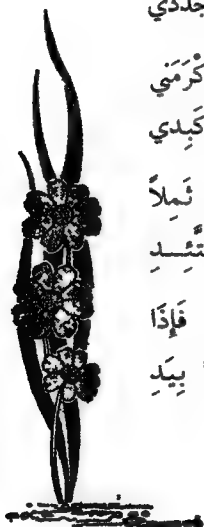 جددي
كْرَمَني
كَبِدي
ثَمِلاً
تَّئِـــدِ
فَإِذَا
بِيَدِ